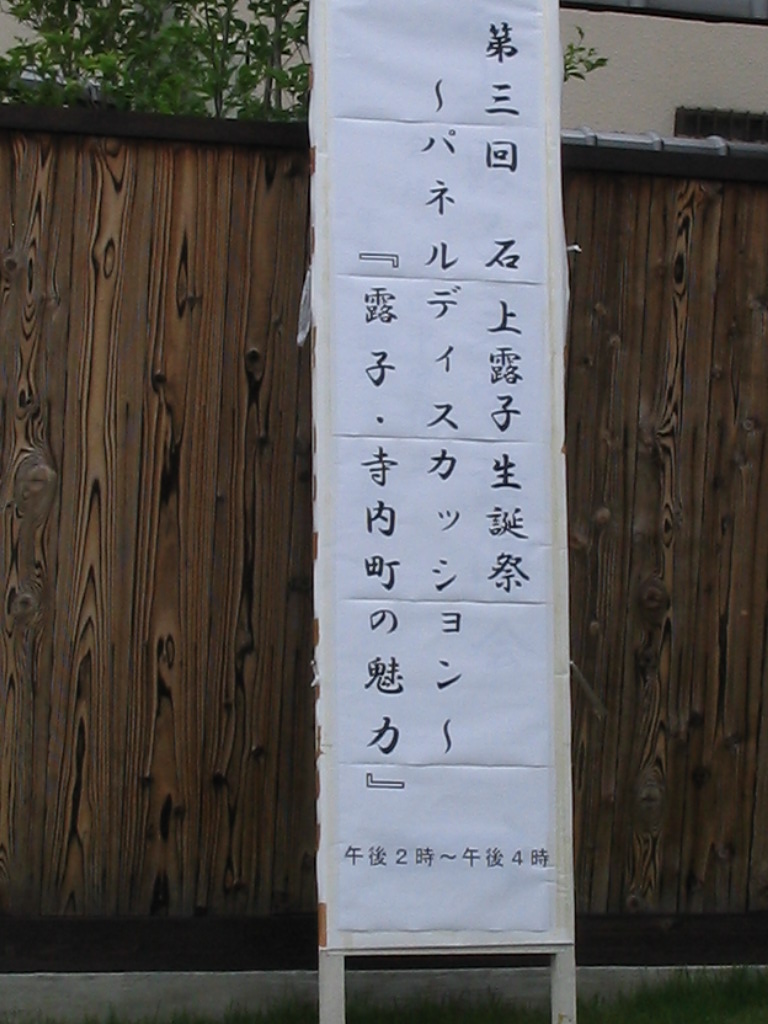 第三回 石上露子生誕祭
～パネルディスカッション～
『露子・寺内町の魅力』
午後2時～午後4時